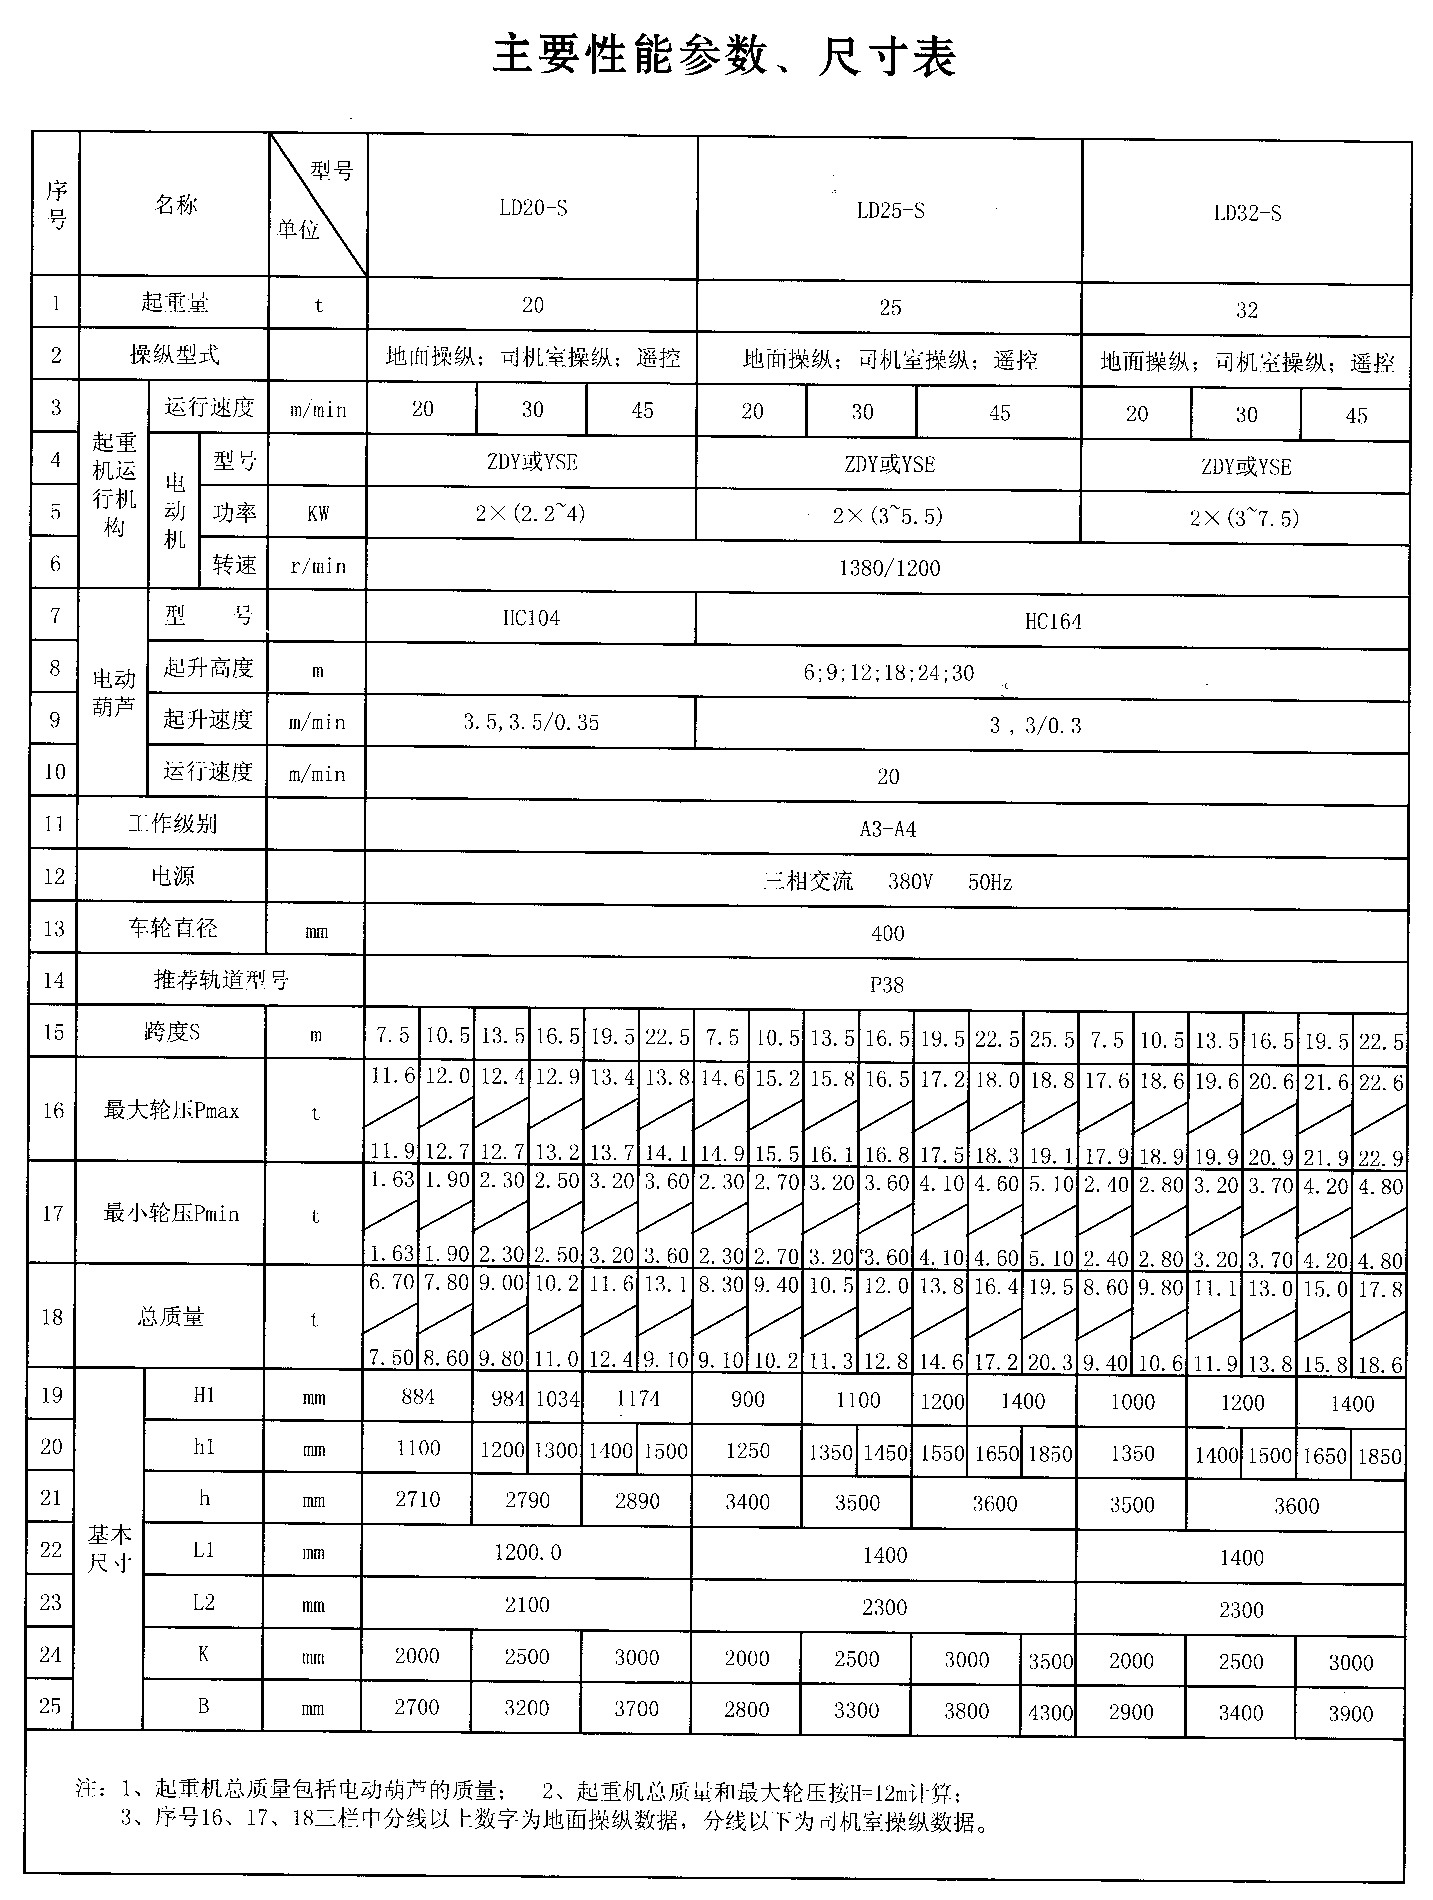 主要性能参数、尺寸表
序号 名称 型号 单位 LD20-S LD25-S LD32-S
1 起重量 t 20 25 32
2 操纵型式 地面操纵；司机室操纵；遥控 地面操纵；司机室操纵；遥控 地面操纵；司机室操纵；遥控
起重机运行机构
3 运行速度 m/min 20 30 45 20 30 45 20 30 45
电动机
4 型号 ZDY或YSE ZDY或YSE ZDY或YSE
5 功率 KW 2×(2.2~4) 2×(3~5.5) 2×(3~7.5)
6 转速 r/min 1380/1200
电动葫芦
7 型 号 HC104 HC164
8 起升高度 m 6;9;12;18;24;30
9 起升速度 m/min 3.5,3.5/0.35 3，3/0.3
10 运行速度 m/min 20
11 工作级别 A3-A4
12 电源 三相交流 380V 50Hz
13 车轮直径 mm 400
14 推荐轨道型号 P38
15 跨度S m 7.5 10.5 13.5 16.5 19.5 22.5 7.5 10.5 13.5 16.5 19.5 22.5 25.5 7.5 10.5 13.5 16.5 19.5 22.5
16 最大轮压Pmax t 11.6 12.0 12.4 12.9 13.4 13.8 14.6 15.2 15.8 16.5 17.2 18.0 18.8 17.6 18.6 19.6 20.6 21.6 22.6
11.9 12.7 12.7 13.2 13.7 14.1 14.9 15.5 16.1 16.8 17.5 18.3 19.1 17.9 18.9 19.9 20.9 21.9 22.9
17 最小轮压Pmin t 1.63 1.90 2.30 2.50 3.20 3.60 2.30 2.70 3.20 3.60 4.10 4.60 5.10 2.40 2.80 3.20 3.70 4.20 4.80
1.63 1.90 2.30 2.50 3.20 3.60 2.30 2.70 3.20 3.60 4.10 4.60 5.10 2.40 2.80 3.20 3.70 4.20 4.80
18 总质量 t 6.70 7.80 9.00 10.2 11.6 13.1 8.30 9.40 10.5 12.0 13.8 16.4 19.5 8.60 9.80 11.1 13.0 15.0 17.8
7.50 8.60 9.80 11.0 12.4 9.10 9.10 10.2 11.3 12.8 14.6 17.2 20.3 9.40 10.6 11.9 13.8 15.8 18.6
基本尺寸
19 H1 mm 884 984 1034 1174 900 1100 1200 1400 1000 1200 1400
20 h1 mm 1100 1200 1300 1400 1500 1250 1350 1450 1550 1650 1850 1350 1400 1500 1650 1850
21 h mm 2710 2790 2890 3400 3500 3600 3500 3600
22 L1 mm 1200.0 1400 1400
23 L2 mm 2100 2300 2300
24 K mm 2000 2500 3000 2000 2500 3000 3500 2000 2500 3000
25 B mm 2700 3200 3700 2800 3300 3800 4300 2900 3400 3900
注：1、起重机总质量包括电动葫芦的质量； 2、起重机总质量和最大轮压按H=12m计算；
3、序号16、17、18三栏中分线以上数字为地面操纵数据，分线以下为司机室操纵数据。